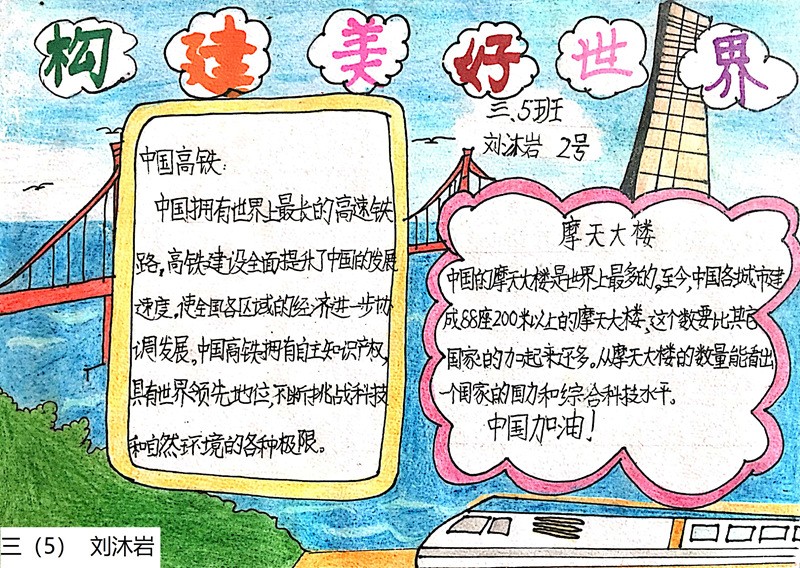 构建美好世界
三.5班
刘沐岩 2号
中国高铁:
中国拥有世界上最长的高速铁
路。高铁建设全面提升了中国的发展
速度。使全国各区域的经济进一步协
调发展。中国高铁拥有自主知识产权,
具有世界领先地位,不断挑战科技
和自然环境的各种极限。
摩天大楼
中国的摩天大楼是世界上最多的。至今,中国各城市建
成88座200米以上的摩天大楼、这个数要比其它
国家的加起来还多。从摩天大楼的数量能看出
一个国家的国力和综合科技水平。
中国加油!
三(5) 刘沐岩